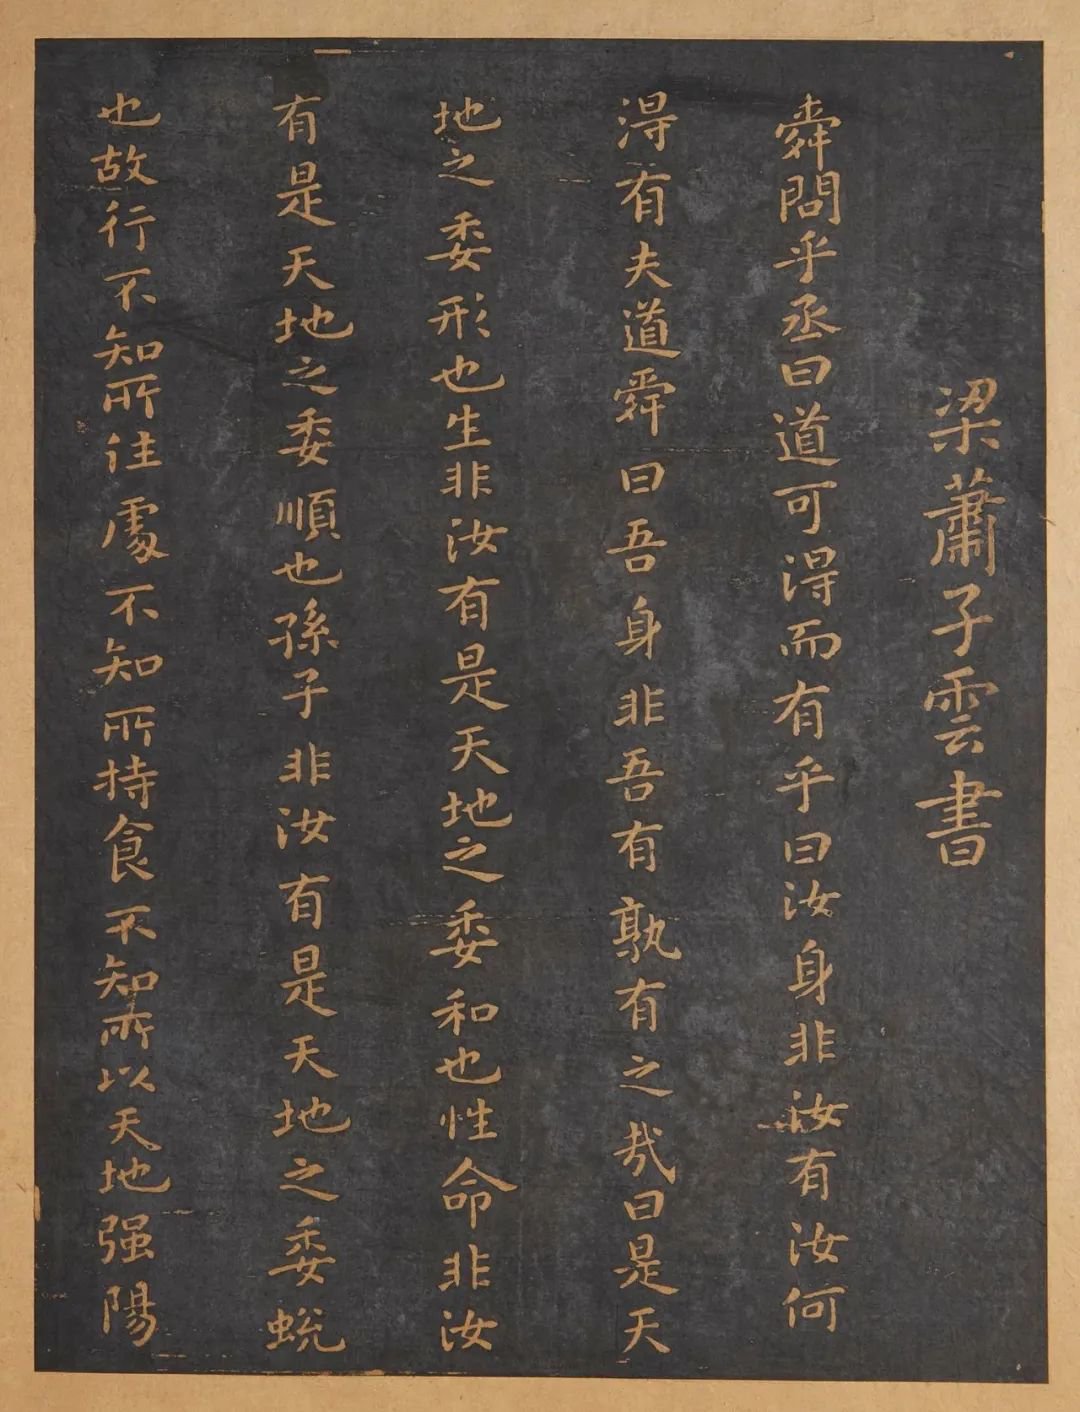 梁蕭子雲書
舜問乎丞曰道可得而有乎曰汝身非汝有汝何
得有夫道舜曰吾身非吾有孰有之哉曰是天
地之委形也生非汝有是天地之委和也性命非汝
有是天地之委順也孫子非汝有是天地之委蛻
也故行不知所往處不知所持食不知所以天地强陽